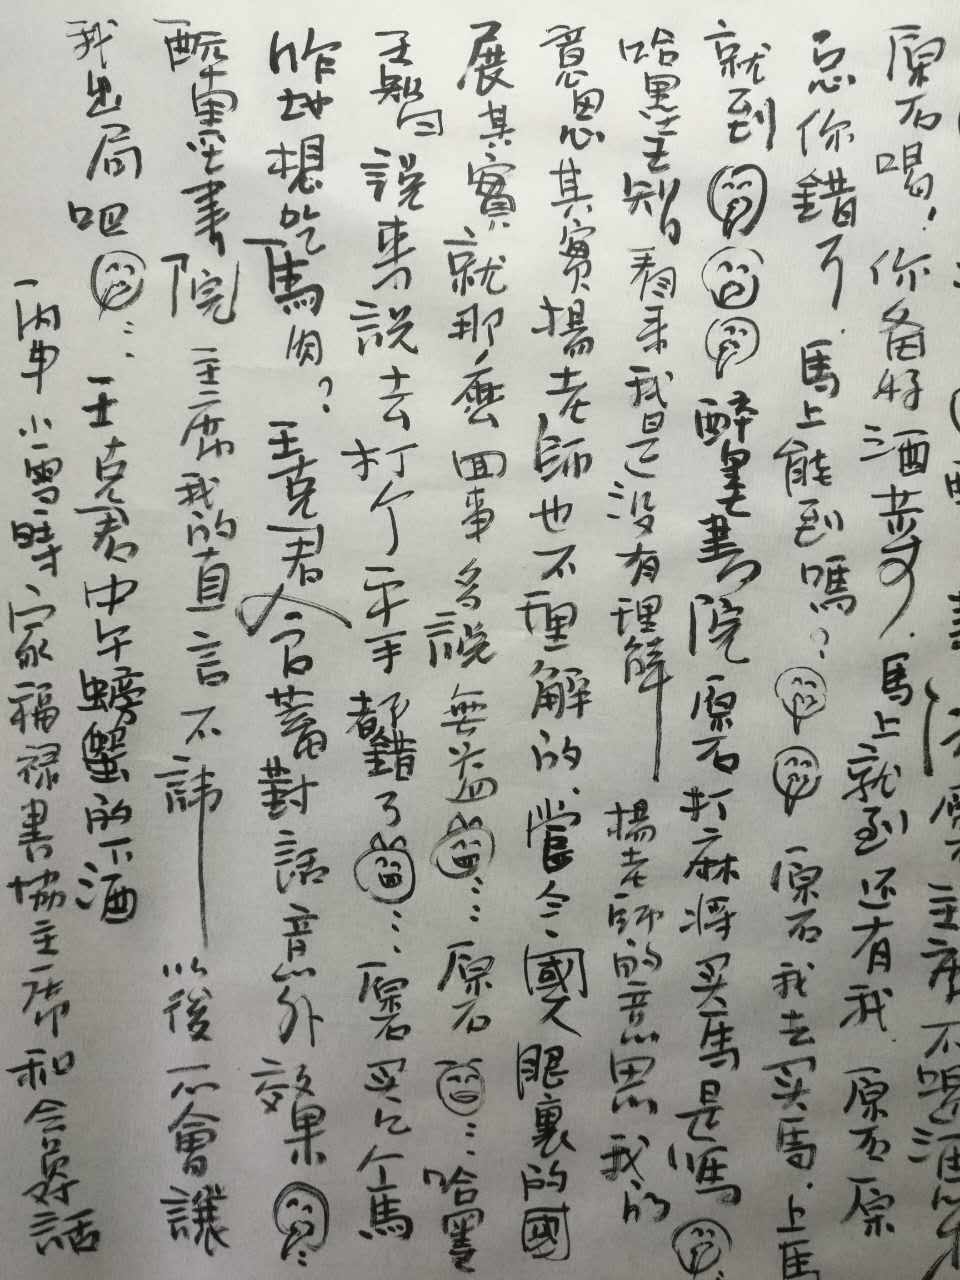 主席不喝酒
原石喝，你备好酒恭候。馬上就到还有我 原石原
总你錯了。馬上能到嗎？原石我去买馬。上馬
就到 醉墨書院原石打麻将买馬是嗎
哈墨王智看来我是没有理解 楊老師的意思我的
意思其實楊老師也不理解的，當今國人眼裏的國
展其實就那麽回事多説無益…原石…哈墨
王智勻説来説去打个平手都錯了…原石买乞个馬
咋地想吃馬肉？王克君人官蓄對話意外效果
醉墨書院 主席我的直言不諱 以後不會讓
我出局吧…王克君中午螃蟹的下酒
丙申小雪時家福禄書協主席和会員对話